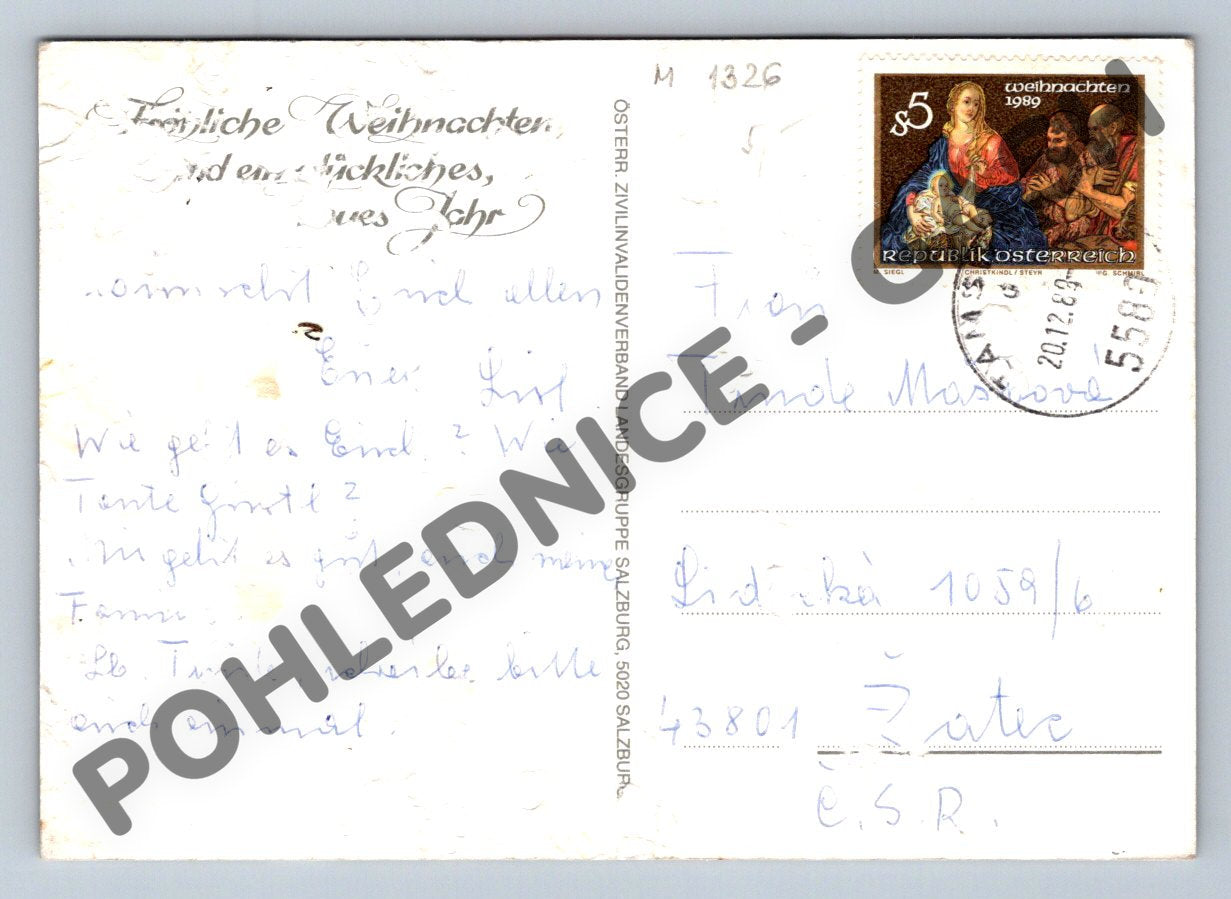 Fröhliche Weihnachten
und ein glückliches,
neues Jahr
wünscht Euch allen
Eure Lisl.
Wie geht es Euch? Wie
Tante
Mir geht es gut, auch meine
Lb. schreibe bitte
auch einmal.
ÖSTERR. ZIVILINVALIDENVERBAND LANDESGRUPPE SALZBURG, 5020 SALZBURG
M 1326
5
weihnachten
1989
S5
REPUBLIK ÖSTERREICH
CHRISTKINDL/STEYR
TAMS
20.12.89
5580
Frau
Tünde
1059/6
43801 Žatec
Č.S.R.
POHLEDNICE -